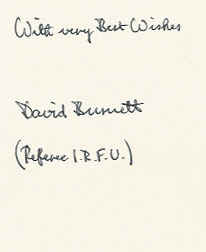 With very Best Wishes
David Burnett
(Referee I.R.F.U.)